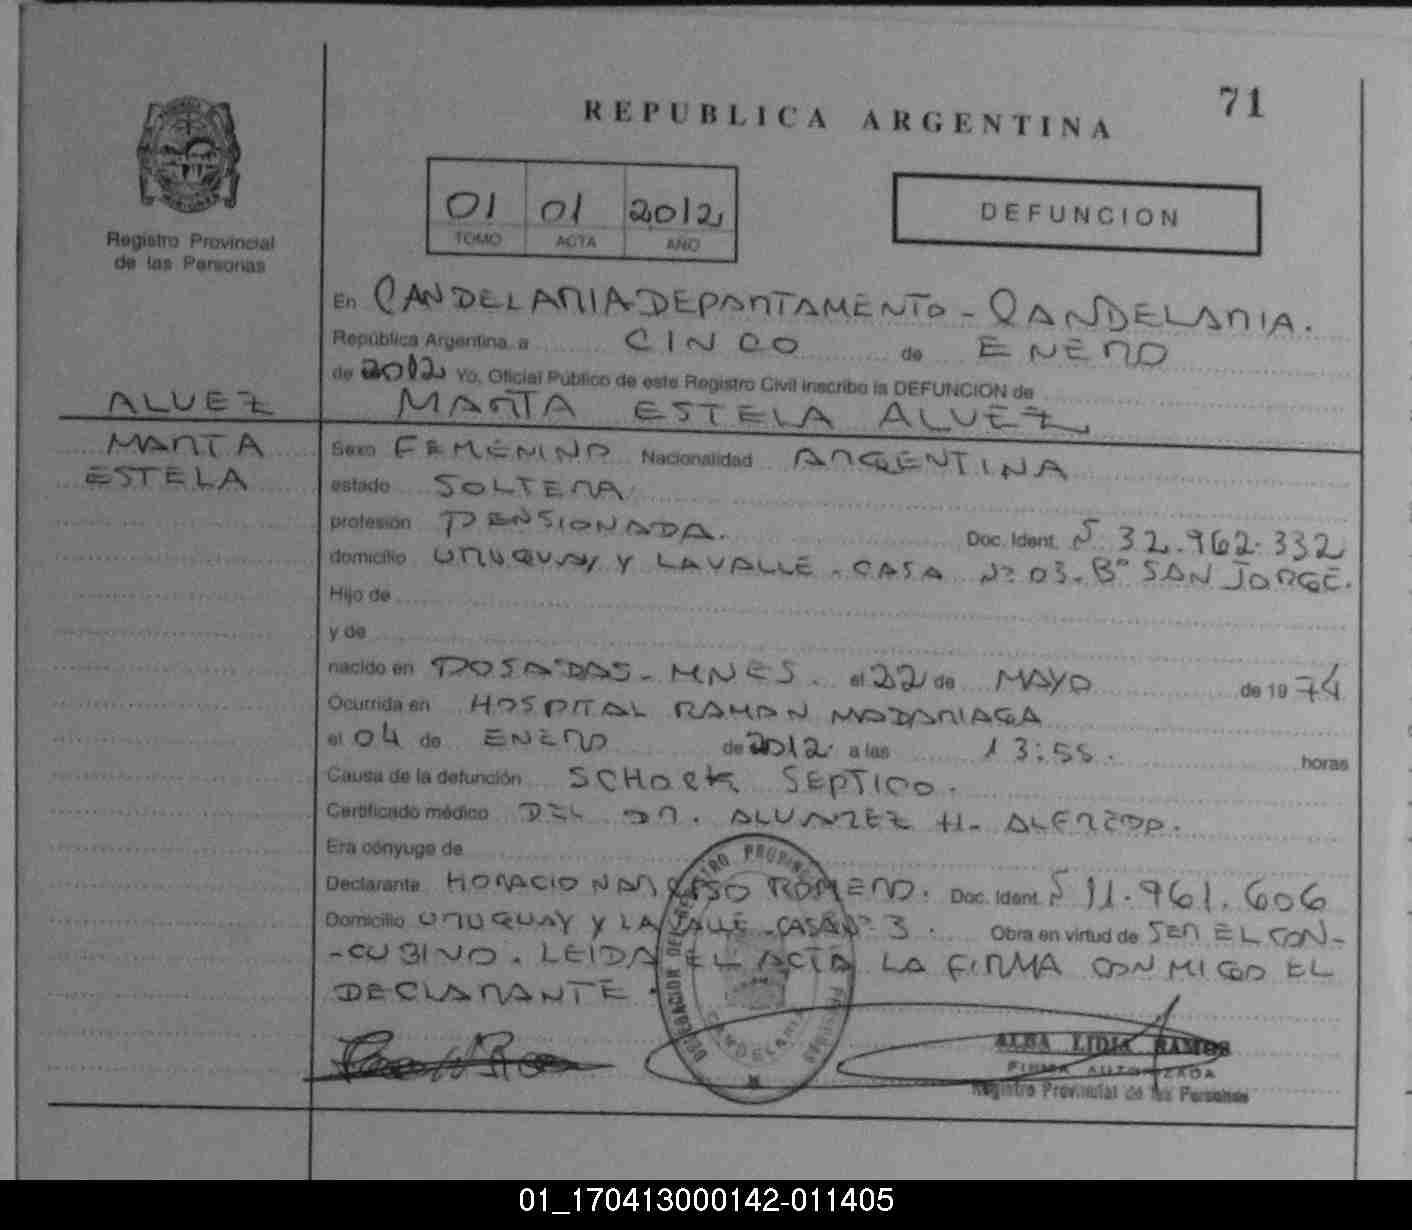 71
REPUBLICA ARGENTINA
01 01 2012
TOMO ACTA AÑO
DEFUNCION
Registro Provincial
de las Personas
En CANDELARIA DEPARTAMENTO - CANDELARIA.
República Argentina, a CINCO de ENERO
de 2012 Yo, Oficial Público de este Registro Civil inscribo la DEFUNCION de
ALVEZ MARTA ESTELA ALVEZ
MARTA
ESTELA
Sexo FEMENINO Nacionalidad ARGENTINA
estado SOLTERA
profesión PENSIONADA. Doc. Ident. Nº 32.962.332
domicilio URUGUAY Y LAVALLE - CASA Nº 03 - Bº SAN JORGE.
Hijo de
y de
nacido en POSADAS - MNES. el 22 de MAYO de 1974
Ocurrida en HOSPITAL RAMON MADARIAGA
el 04 de ENERO de 2012 a las 13:55. horas
Causa de la defunción SCHOCK SEPTICO.
Certificado médico DEL DR. ALVAREZ H. ALFREDO.
Era cónyuge de
Declarante HORACIO NARCISO ROMERO. Doc. Ident. Nº 11.961.606
Domicilio URUGUAY Y LAVALLE - CASA Nº 3. Obra en virtud de SER EL CON-
-CUBINO. LEIDA EL ACTA LA FIRMA CONMIGO EL
DECLARANTE.
ALBA LIDIA RAMOS
FIRMA AUTORIZADA
Registro Provincial de las Personas
CANDELARIA
01_170413000142-011405